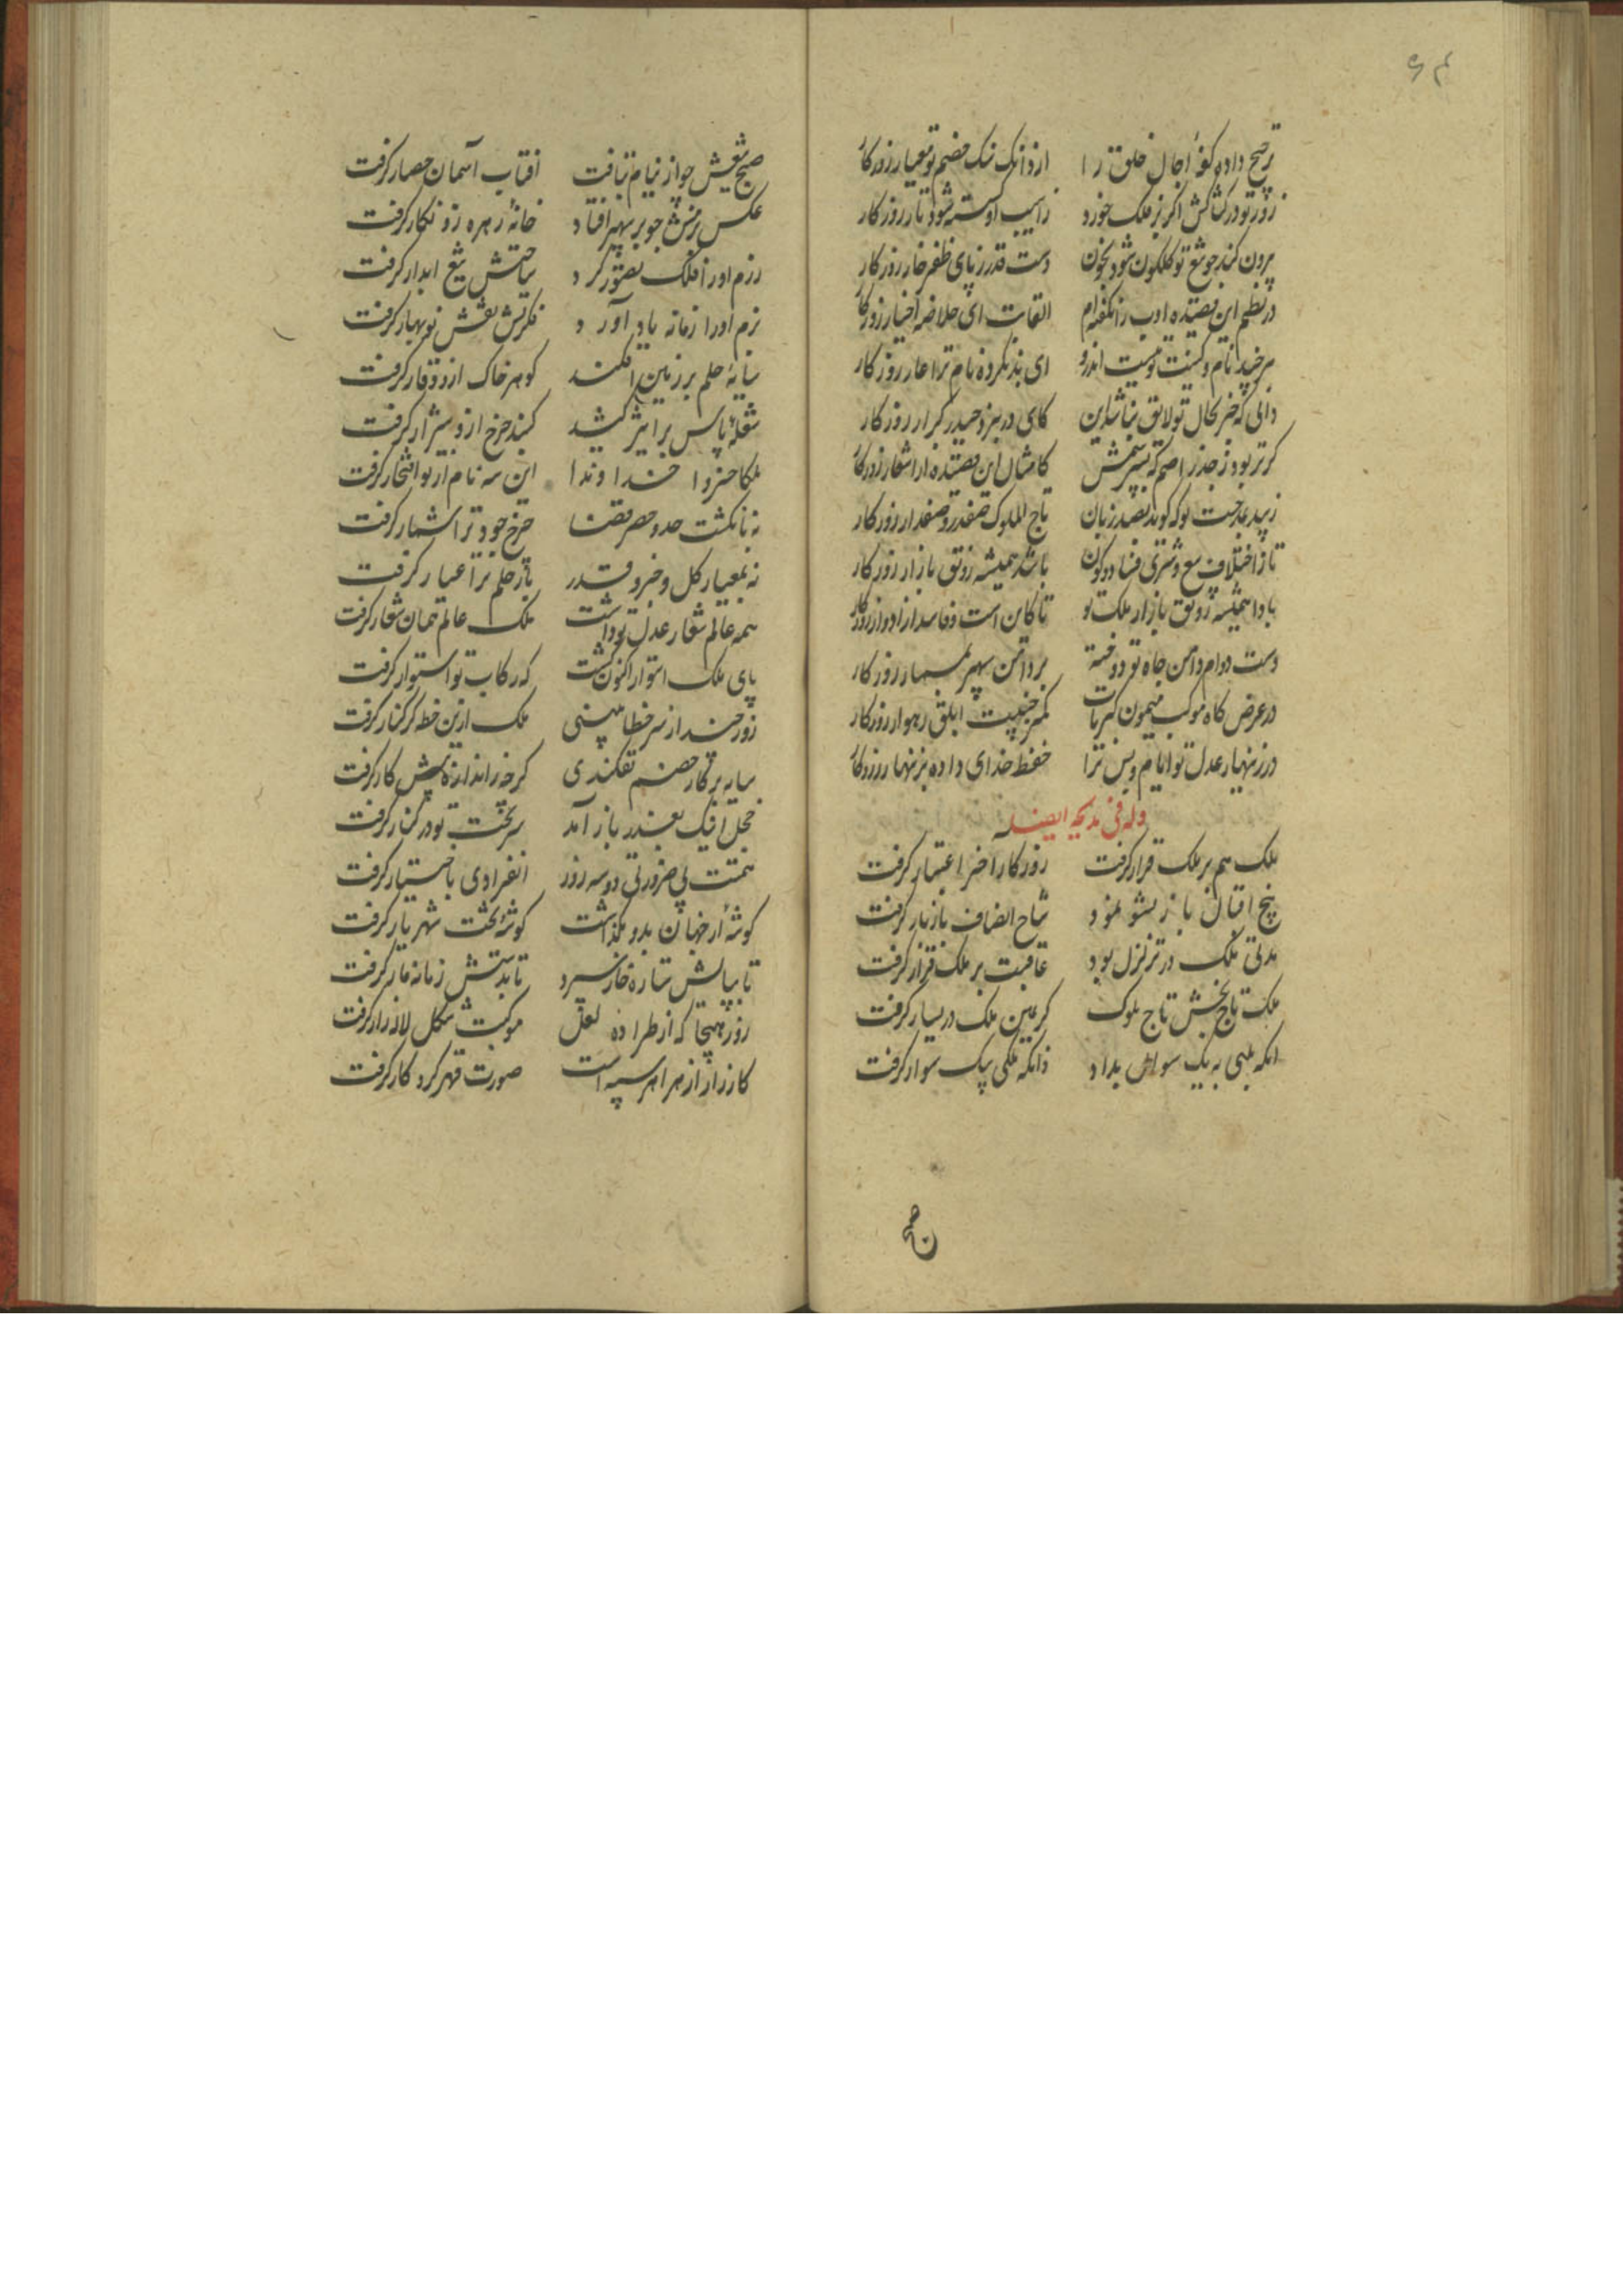 ۶۴
ترجیح داده کفهٔ اجال خلق را ازدانک سنک خصم تو معیار روزکار
زور تو در کشاکش اکر بر فلک خورد زاسیب او کسسته شود تار روزکار
بیرون کند چو تیغ تو کلکون شود بخون دست قدر ز پای ظفر خار روزکار
در نظم این قصیده ادب را نکفته‌ام القاب ای خلاصه اخیار روزکار
هرچند نام و کنیت تو نیست اندرو ای بد نکرده نام ترا عار روزکار
دانی که جز بحال تو لایق نباشد این کای در نبرد حیدر کرار روزکار
کر تر بود ز جذر اصم که بپرسمش کامثال این قصیده از اشعار روزکار
زیبد بجست لوک کوید بصد زبان تاج الملوک صفدر و صفدار روزکار
تا ز اختلاف بیع و شری فساد و کون باشد همیشه رونق بازار روزکار
بادا همیشه رونق بازار ملک تو تا کاین است و فاسد از ادوار روزکار
دست دوام دامن جاه تو دوخته بر دامن سپهر بمسمار روزکار
در عرض کاه موکب میمون کبریات کمتر جنیبت ابلق رهوار روزکار
در زینهار عدل تو ایام و بس ترا حفظ خدای داده بزنهار روزکار
وله فی مدیحه ایضا
ملک هم بر ملک قرار کرفت روزکار اخر اعتبار کرفت
بیخ اقبال باز نشو نمود شاخ انصاف باز بار کرفت
مدتی ملک در تزلزل بود عاقبت بر ملک قرار کرفت
ملک تاج بخش تاج ملوک کز یمین ملک در یسار کرفت
انکه ملکی به یک سوال بداد وانکه ملکی بیک سوار کرفت
صبح
صبح تیغش چو از نیام بتافت افتاب آسمان حصار کرفت
عکس بزمش چو بر سپهر افتاد خانهٔ زهره زو نکار کرفت
رزم او را فلک تصور کرد ساحتش تیغ ابدار کرفت
بزم او را زمانه یاد آورد فکرتش نقش نوبهار کرفت
سایهٔ حلم بر زمین افکند کوهر خاک ازو وقار کرفت
شعلهٔ باس بر اثیر کشید کنبد چرخ ازو شرار کرفت
ملکا خسروا خداوندا این سه نام از تو افتخار کرفت
نه بانکشت حد و حصر قضا چرخ جود ترا شمار کرفت
نه بمعیار کل و جزو قدر بار حلم ترا عیار کرفت
همه عالم شعار عدل تو داشت ملک عالم همان شعار کرفت
پای ملک استوار اکنون کشت که رکاب تو استوار کرفت
روز چند از سر خطا بینی ملک ازین خطه کر کنار کرفت
سایه بر کار خصم نفکندی کر چه زاندازه پیش کار کرفت
خجل انک بعذر باز آمد سربخت تو در کنار کرفت
همتت بی ضرورتی دو سه روز انفرادی باختیار کرفت
کوشهٔ از جهان بدو بکذاشت کوشهٔ تخت شهریار کرفت
تا بپالش ستاره خار سپرد تا بدستش زمانه مار کرفت
روز هیجا که از طرادهٔ لعل موکبت شکل لاله‌زار کرفت
کارزار از هزاهز سپه است صورت قهر کردکار کرفت